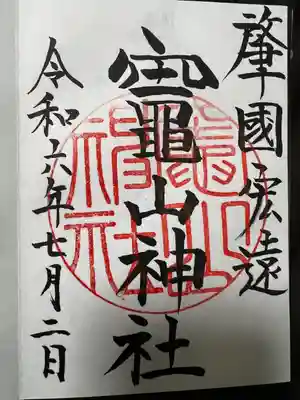 肇國宏遠
竈山神社
令和六年七月二日